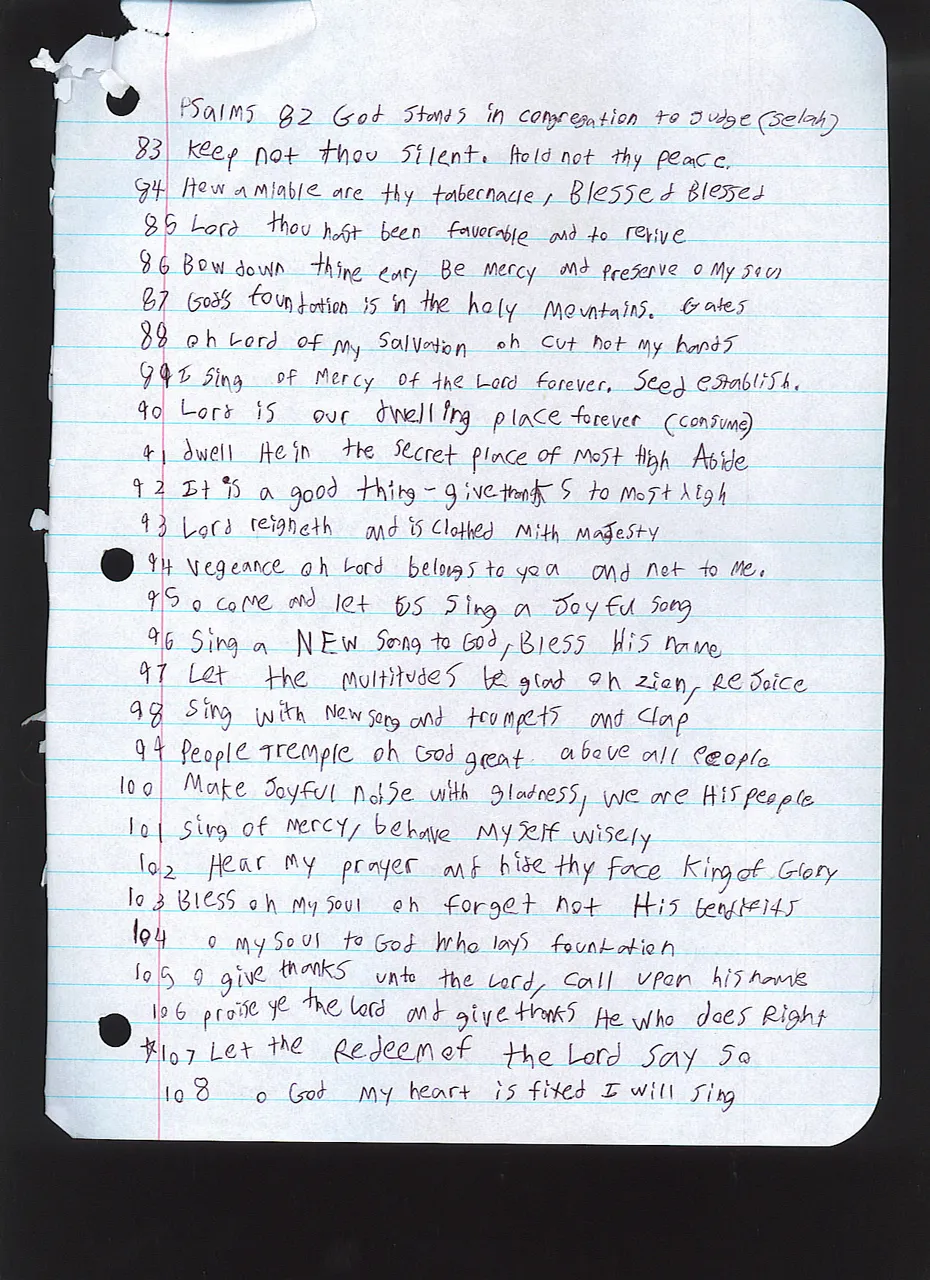 Psalms 82 God stands in congregation to Judge (selah)
83 Keep not thou silent. Hold not thy peace.
84 How amiable are thy tabernacle, Blessed Blessed
85 Lord thou hast been favorable and to revive
86 Bow down thine ear, Be Mercy and preserve o My soul
87 God's foundation is in the holy Mountains. Gates
88 oh Lord of My Salvation oh cut not my hands
89 I Sing of Mercy of the Lord forever. Seed establish.
90 Lord is our dwelling place forever (consume)
91 dwell He in the secret place of Most High Abide
92 It is a good thing - give thanks to Most High
93 Lord reigneth and is Clothed With Majesty
94 Vegeance oh Lord belongs to you and not to Me.
95 o come and let us Sing a Joyful song
96 Sing a NEW Song to God, Bless His name
97 Let the Multitudes be glad oh zion, ReJoice
98 Sing with New song and trumpets and Clap
99 People Tremple oh God great above all people
100 Make Joyful noise with gladness, we are His people
101 sing of Mercy, behave Myself wisely
102 Hear My prayer and hide thy Face King of Glory
103 Bless oh My Soul oh forget not His
104 o my Soul to God Who lays foundation
105 o give thanks unto the Lord, Call upon his name
106 praise ye the Lord and give thanks He who does Right
*107 Let the Redeem of the Lord Say So
108 o God My heart is fixed I will sing